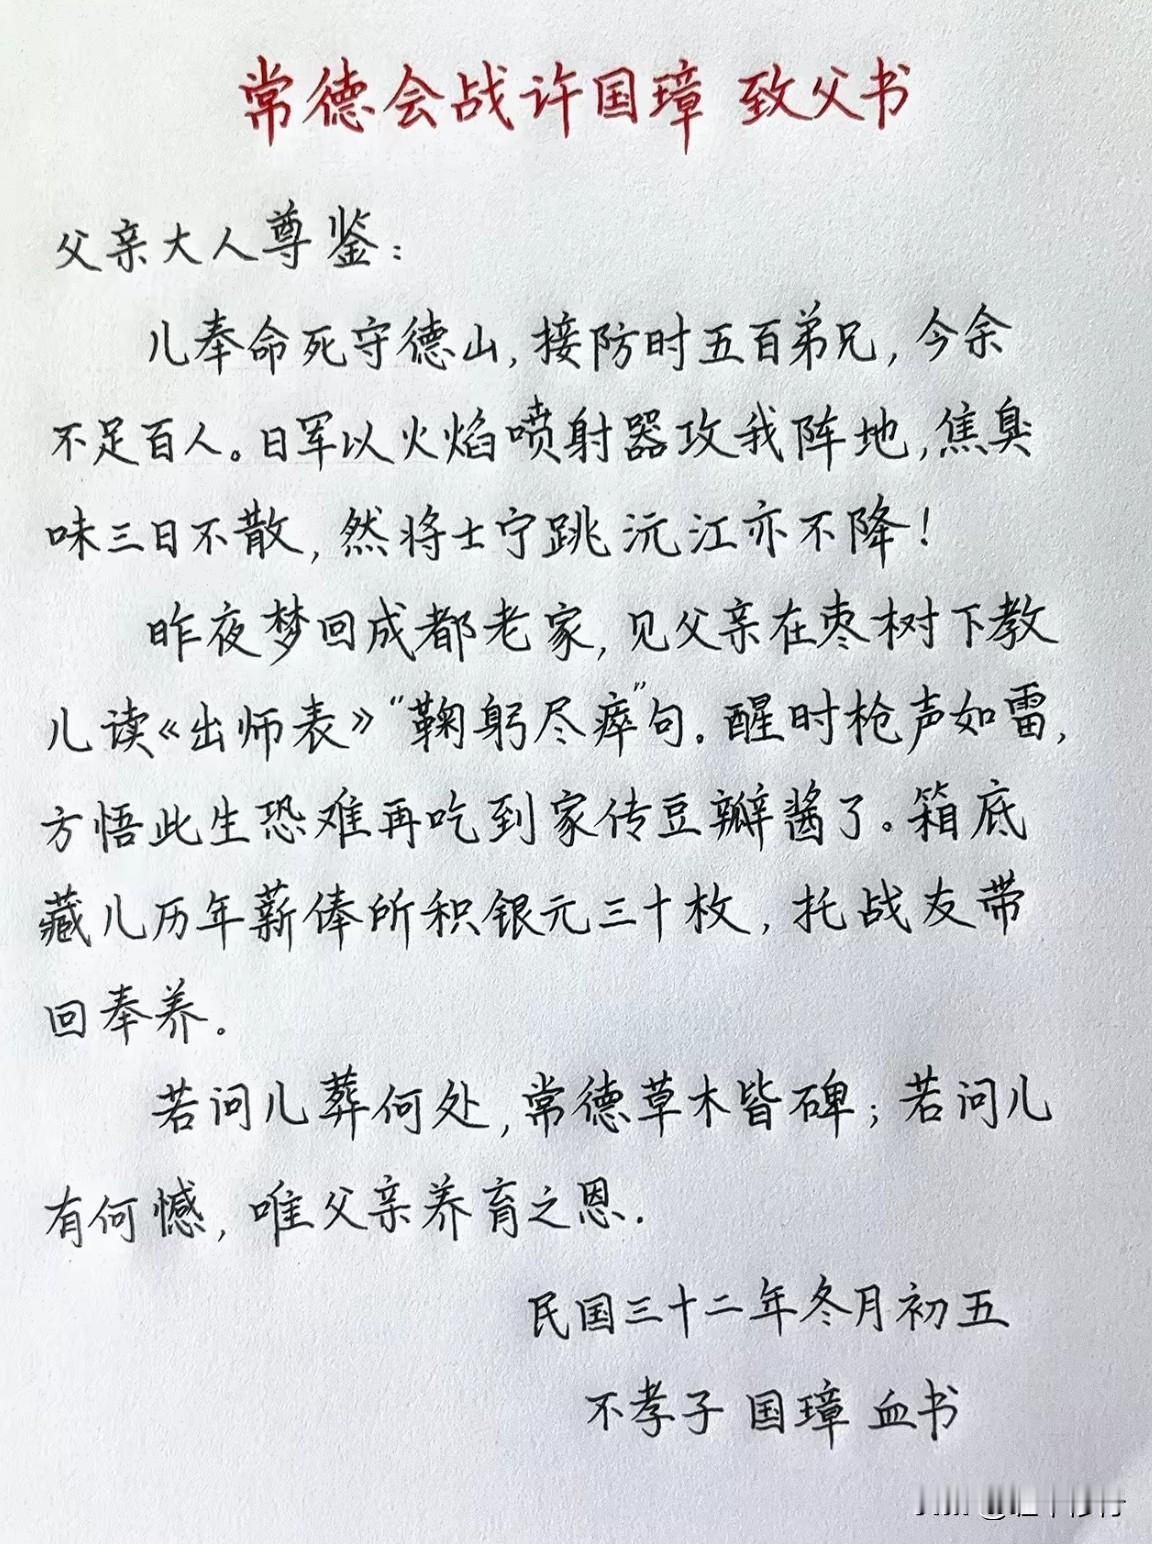 常德会战许国璋 致父书
父亲大人尊鉴：
儿奉命死守德山，接防时五百弟兄，今余
不足百人。日军以火焰喷射器攻我阵地，焦臭
味三日不散，然将士宁跳沅江亦不降！
昨夜梦回成都老家，见父亲在枣树下教
儿读《出师表》“鞠躬尽瘁”句．醒时枪声如雷，
方悟此生恐难再吃到家传豆瓣酱了。箱底
藏儿历年薪俸所积银元三十枚，托战友带
回奉养。
若问儿葬何处，常德草木皆碑；若问儿
有何憾，唯父亲养育之恩．
民国三十二年冬月初五
不孝子 国璋 血书